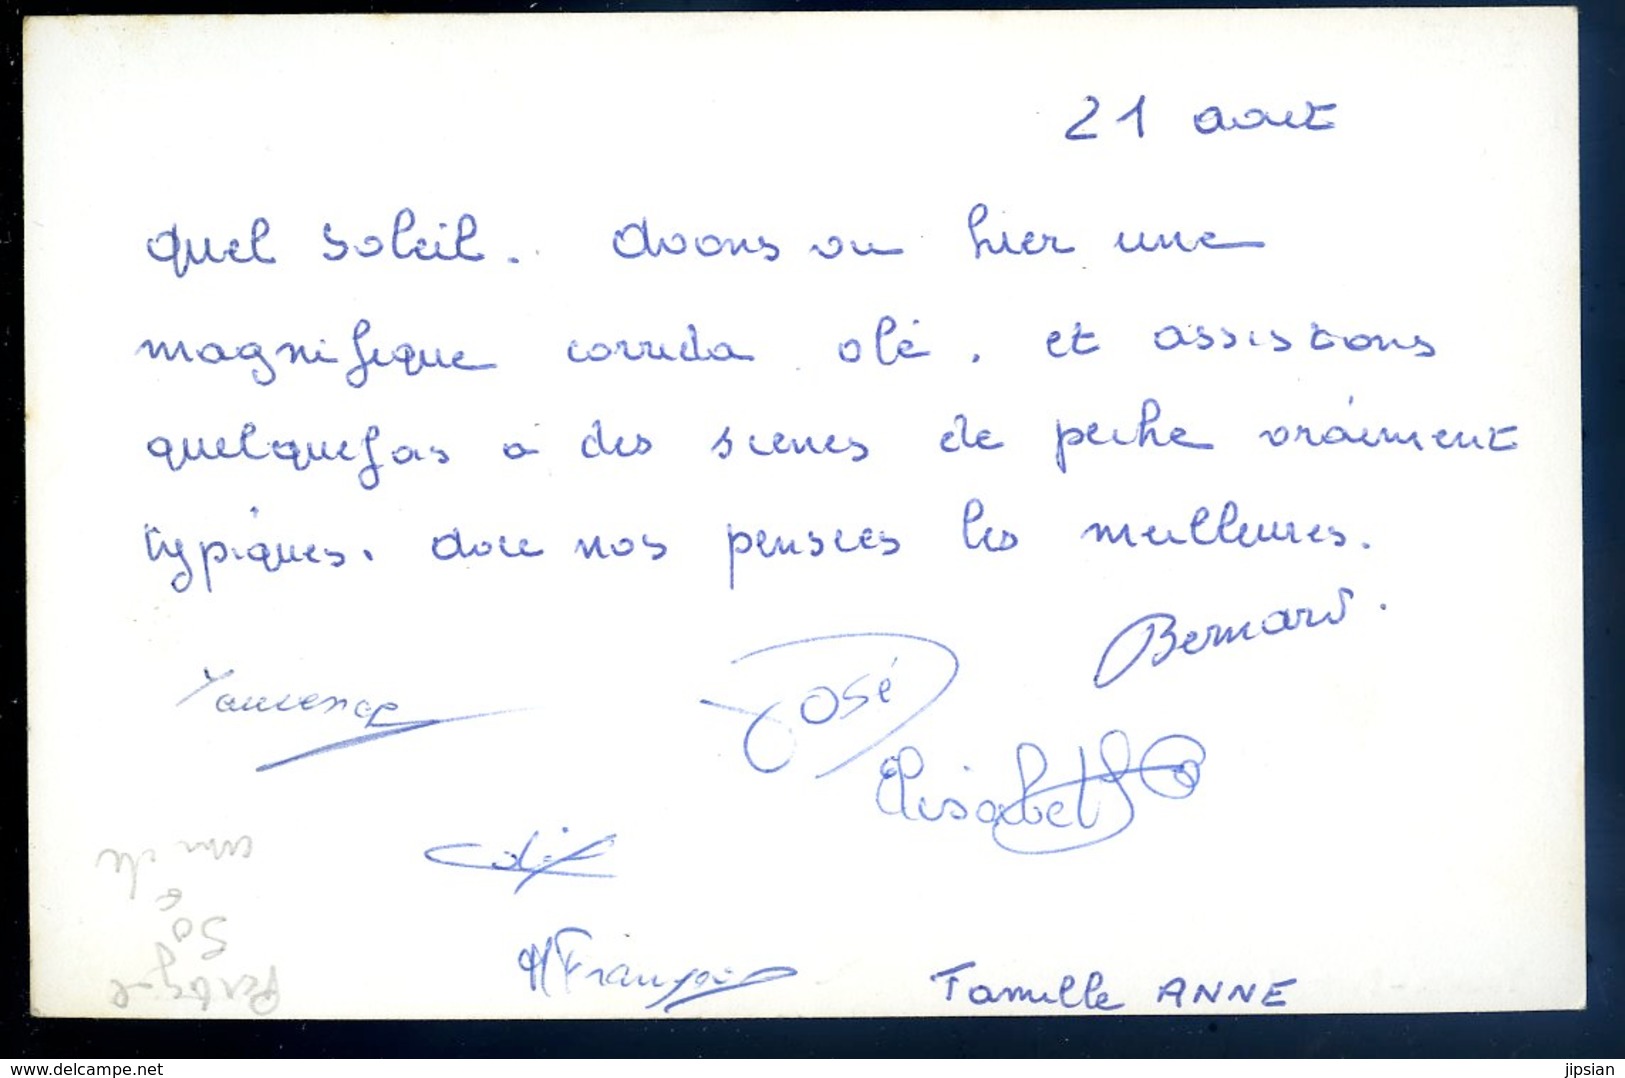 21 aout
quel soleil. Avons vu hier une
magnifique corrida olé. et assistons
quelquefois à des scenes de peche vraiment
typiques. donc nos pensees les meilleures.
Bernard.
Laurence
José
Elisabeth
Odile
M Françoise
Famille ANNE
50
www.delcampe.net
jipsian